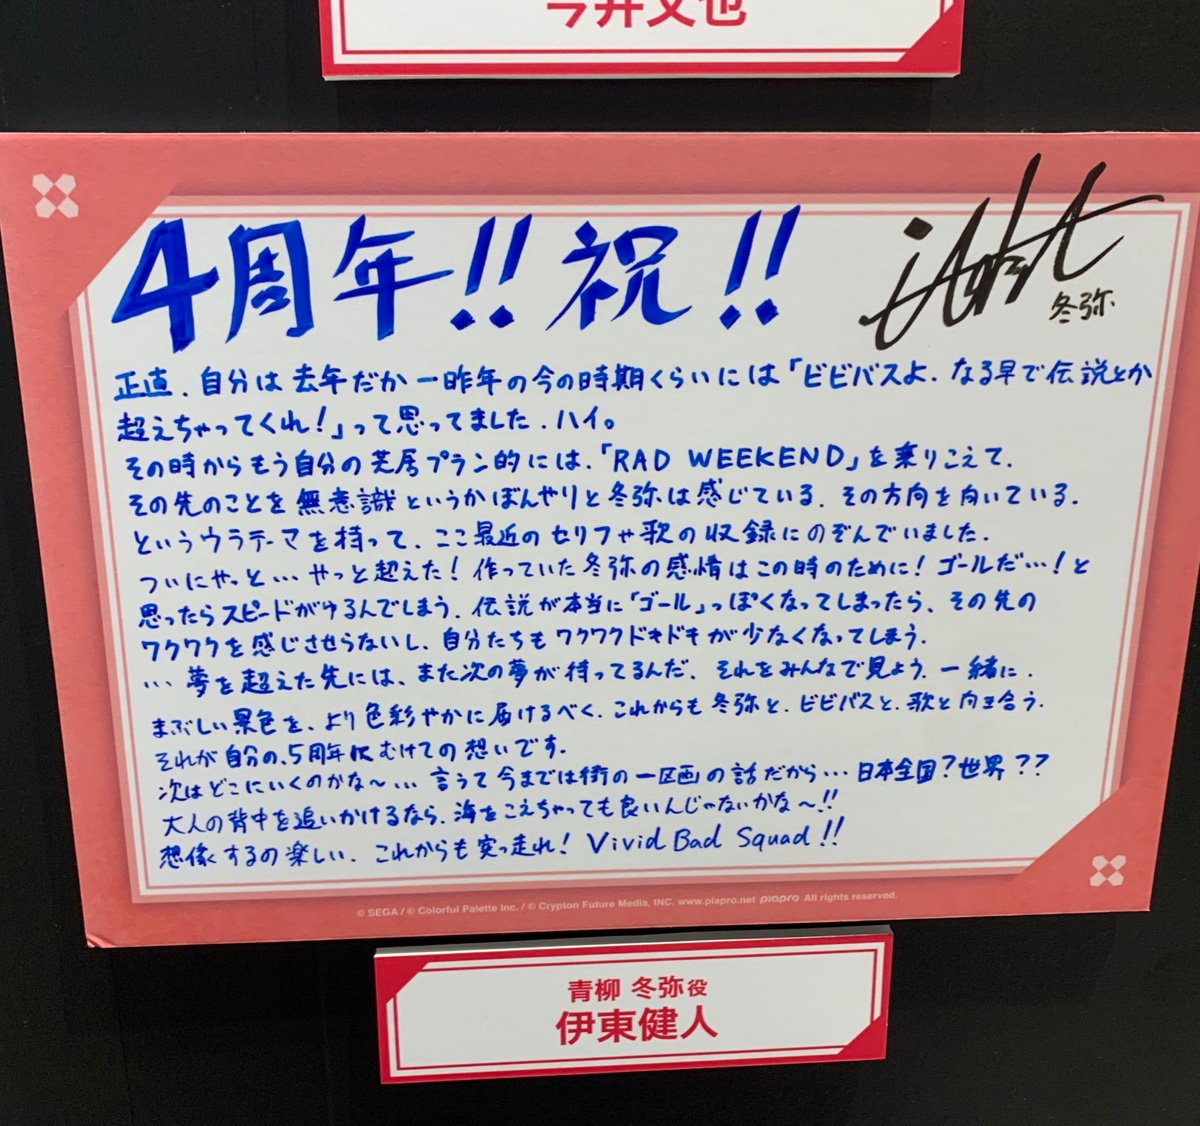 今井文也
4周年!! 祝!!
冬弥
正直、自分は去年だか一昨年の今の時期くらいには「ビビバスよ、なる早で伝説とか
超えちゃってくれ!」って思ってました、ハイ。
その時からもう自分の芝居プラン的には、「RAD WEEKEND」を乗りこえて、
その先のことを無意識というかぼんやりと冬弥は感じている、その方向を向いている、
というウラテーマを持って、ここ最近のセリフや歌の収録にのぞんでいました。
ついにやっと…やっと超えた!作っていた冬弥の感情はこの時のために!ゴールだ…!と
思ったらスピードがゆるんでしまう、伝説が本当に「ゴール」っぽくなってしまったら、その先の
ワクワクを感じさせらないし、自分たちもワクワクドキドキが少なくなってしまう。
… 夢を超えた先には、また次の夢が待ってるんだ、それをみんなで見よう、一緒に。
まぶしい景色を、より色彩やかに届けるべく、これからも冬弥と、ビビバスと、歌と向き合う。
それが自分の、5周年にむけての想いです。
次はどこにいくのかな〜… 言うて今までは街の一区画の話だから…日本全国?世界??
大人の背中を追いかけるなら、海をこえちゃっても良いんじゃないかな〜!!
想像するの楽しい、これからも突っ走れ! Vivid Bad Squad!!
© SEGA / © Colorful Palette Inc. / © Crypton Future Media, INC. www.piapro.net piapro All rights reserved.
青柳 冬弥役
伊東健人